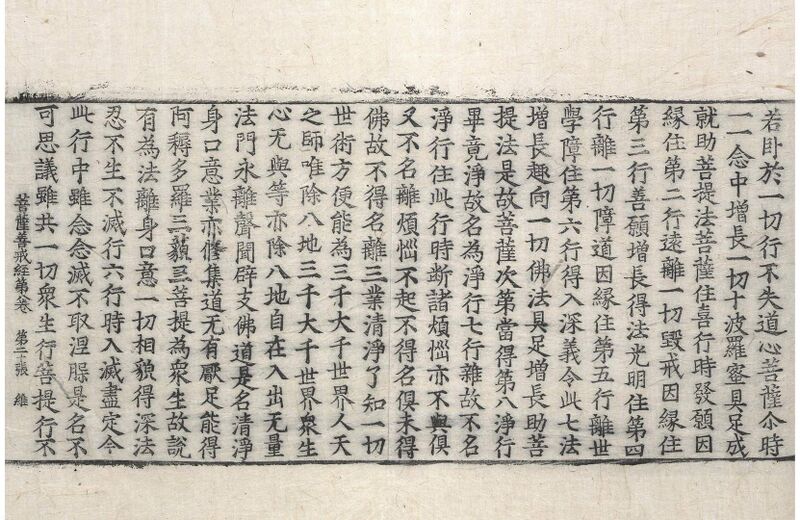 若卧於一切行不失道心菩薩尒時
一一念中增長一切十波羅蜜具足成
就助菩提法菩薩住喜行時發願因
緣住第二行遠離一切毀戒因緣住
第三行善願增長得法光明住第四
行離一切障道因緣住第五行離世
學障住第六行得入深義令此七法
增長趣向一切佛法具足增長助菩
提法是故菩薩次第當得第八淨行
畢竟淨故名為淨行七行雜故不名
淨行住此行時断諸煩惱亦不與俱
又不名離煩惱不起不得名俱未得
佛故不得名離三業清淨了知一切
世術方便能為三千大千世界人天
之師唯除八地三千大千世界衆生
心无與等亦除八地自在入出无量
法門永離聲聞辟支佛道是名清淨
身口意業亦修集道无有厭足能得
阿耨多羅三藐三菩提為衆生故說
有為法離身口意一切相貌得深法
忍不生不滅行六行時入滅盡定今
此行中雖念念滅不取涅槃是名不
可思議雖共一切衆生行菩提行不
菩薩善戒經第 卷 第二十張 維